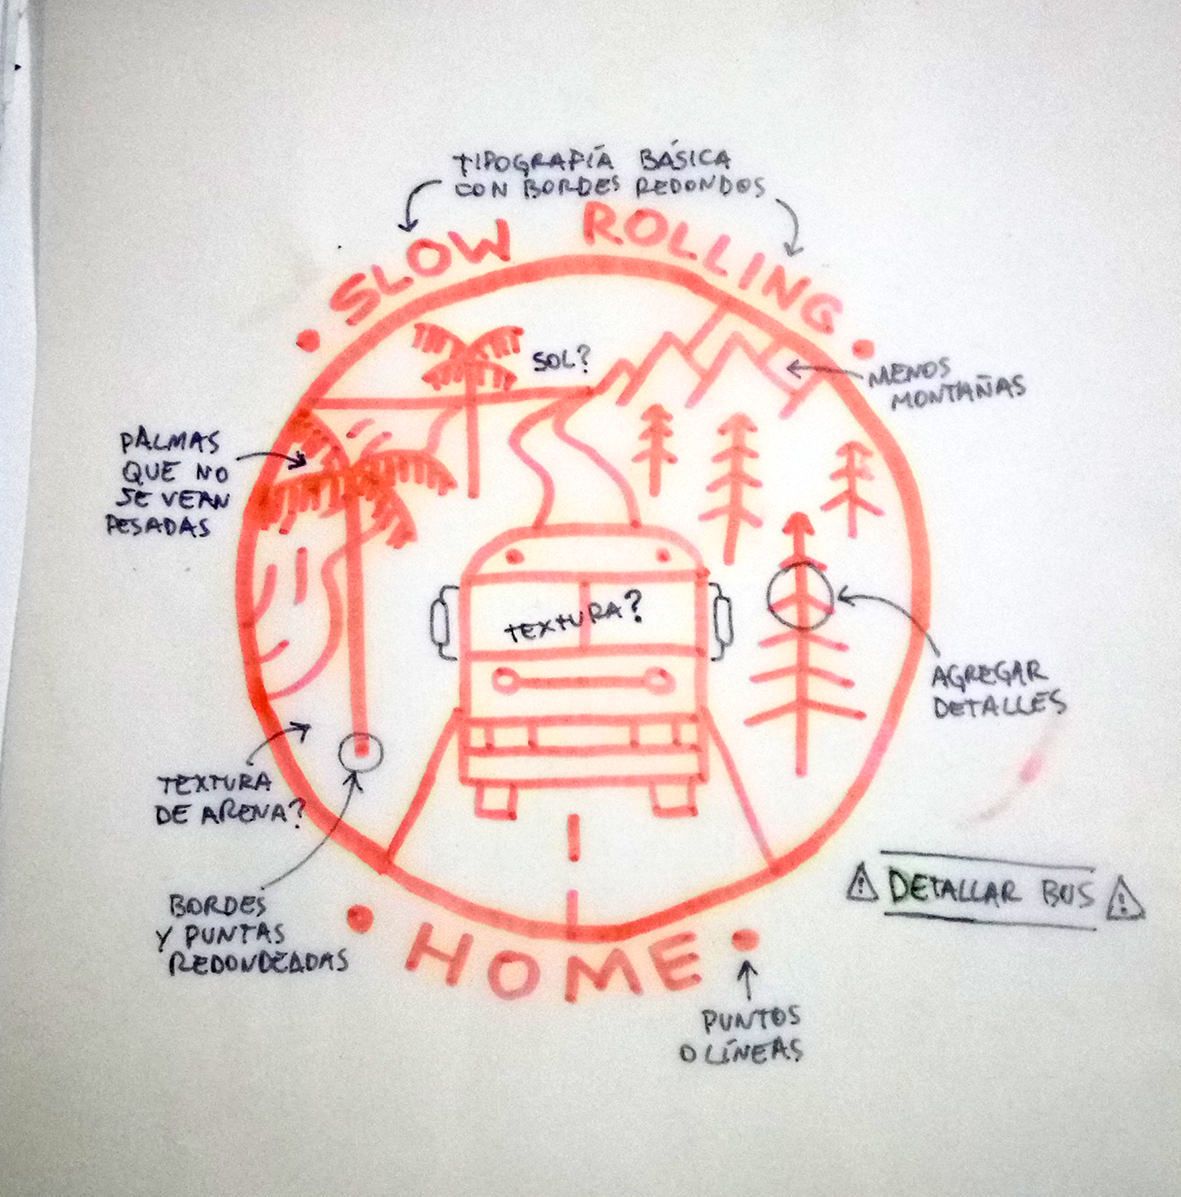 TIPOGRAFÍA BÁSICA
CON BORDES REDONDOS
SLOW ROLLING
SOL?
MENOS
MONTAÑAS
PALMAS
QUE NO
SE VEAN
PESADAS
TEXTURA?
AGREGAR
DETALLES
TEXTURA
DE ARENA?
DETALLAR BUS
BORDES
Y PUNTAS
REDONDEADAS
HOME
PUNTOS
O LÍNEAS